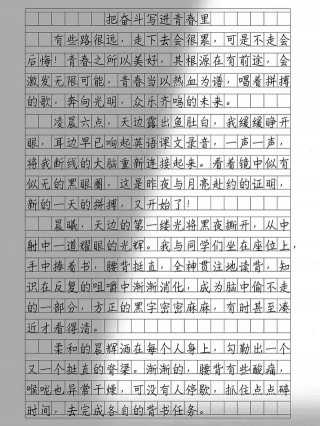 把奋斗写进青春里
有些路很远，走下去会很累，可是不走会
后悔！青春之所以美好，其根源在有前途，会
激发无限可能，青春当以热血为谱，唱着拼搏
的歌，奔向光明，众乐齐鸣的未来。
凌晨六点，天边露出鱼肚白，我缓缓睁开
眼，耳边早已响起英语课文录音，一声一声，
将我断线的大脑重新连接起来。看着镜中似有
似无的黑眼圈，这是昨夜与月亮赴约的证明，
新的一天的拼搏，又开始了！
晨曦，天边的第一缕光将黑夜撕开，从中
射中一道耀眼的光辉。我与同学们坐在座位上，
手中捧着书，腰背挺直，全神贯注地读背，知
识在反复的咀嚼中渐渐消化，成为脑中偷不走
的一部分，方正的黑字密密麻麻，有时甚至凑
近才看得清。
柔和的晨辉洒在每个人身上，勾勒出一个
又一个挺直的脊梁。渐渐的，腰背有些酸痛，
喉咙也异常干燥，可没有人停歇，抓住点点碎
时间，去完成各自的背书任务。